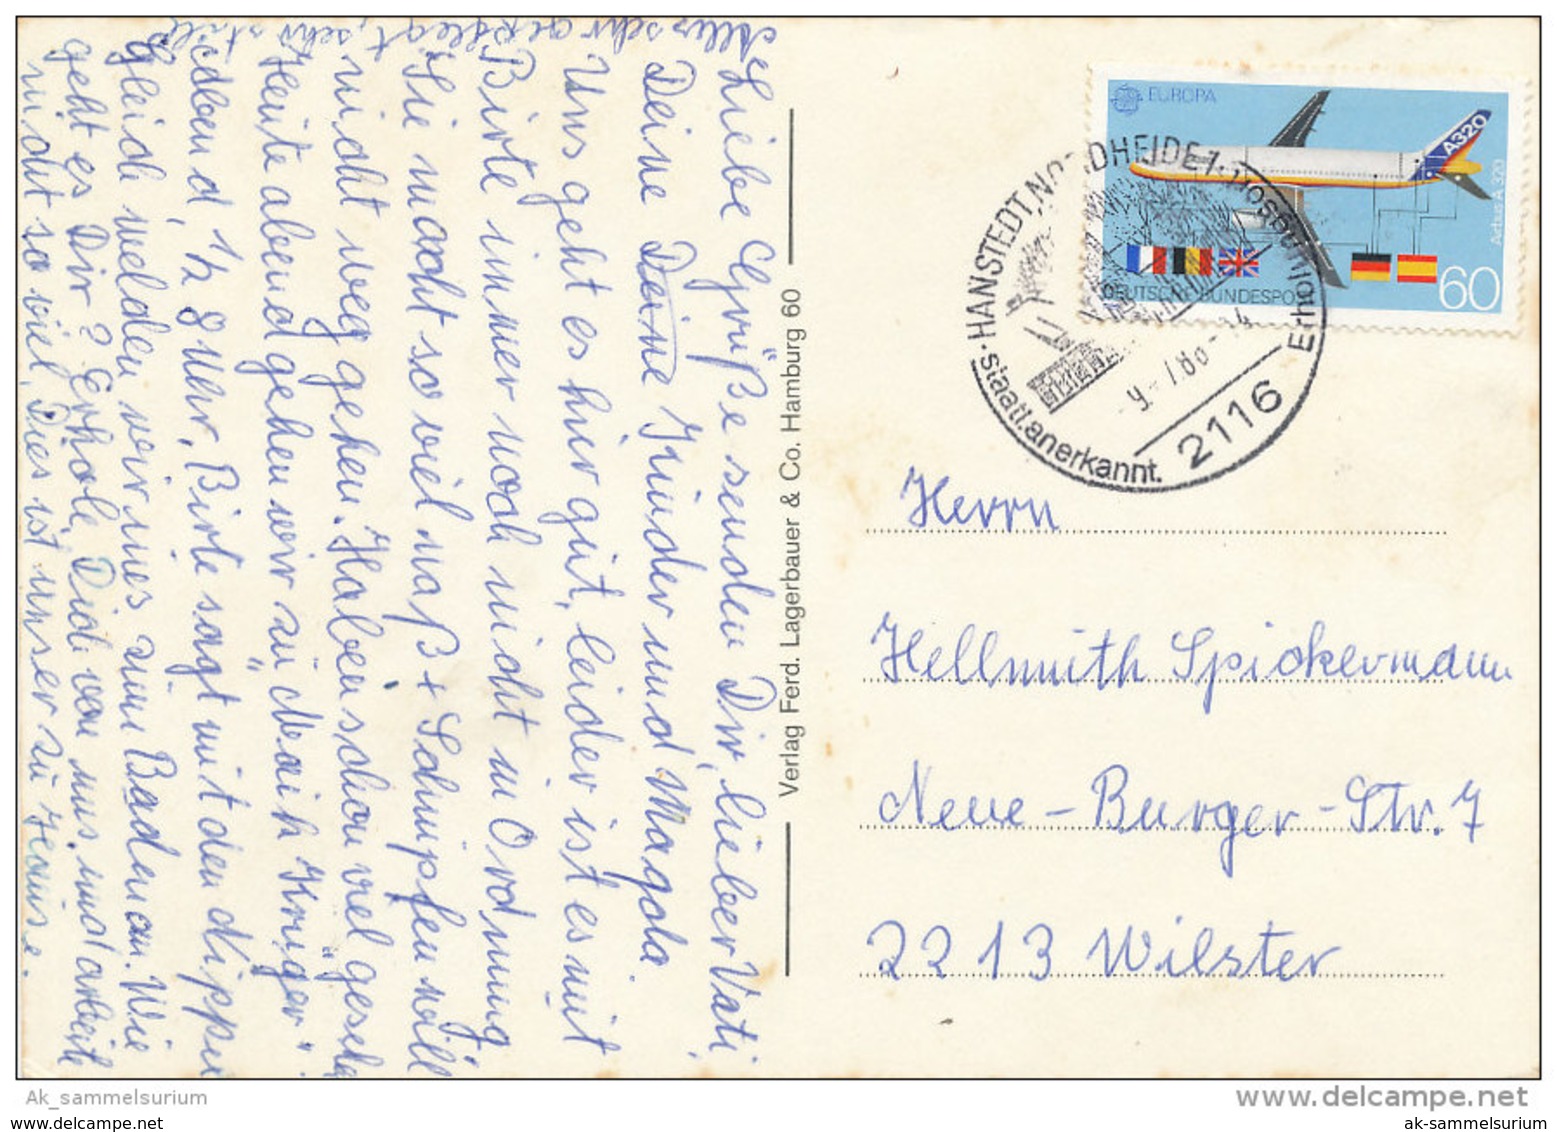 Alles sehr gepflegt, sehr
Liebe Grüße senden Dir, lieber Vati
Deine Deine Kinder und Magda.
Uns geht es hier gut, leider ist es mit
Birte immer noch nicht in Ordnung
Sie macht so viel naß + Schimpfen will
nicht weg gehen. Haben schon viel geseh
Heute abend gehen wir zu "Maik Krüger"
½ 8 Uhr, Birte sagt mit den Nippel
Gleich melden wir uns zum Baden an. Wie
geht es Dir? Erhole Dich von uns und arbeite
nicht so viel. Dies ist unser zu Hause.
Verlag Ferd. Lagerbauer & Co. Hamburg 60
EUROPA
A320
Airbus A 320
DEUTSCHE BUNDESPOST
60
HANSTEDT, NORDHEIDE 1
staatl. anerkannt. Erholungsort
2116
Herrn
Hellmuth Spickermann
Neue-Burger-Str. 7
2213 Wilster
Ak_sammelsurium
www.delcampe.net
www.ak-sammelsurium.de
ak-sammelsurium